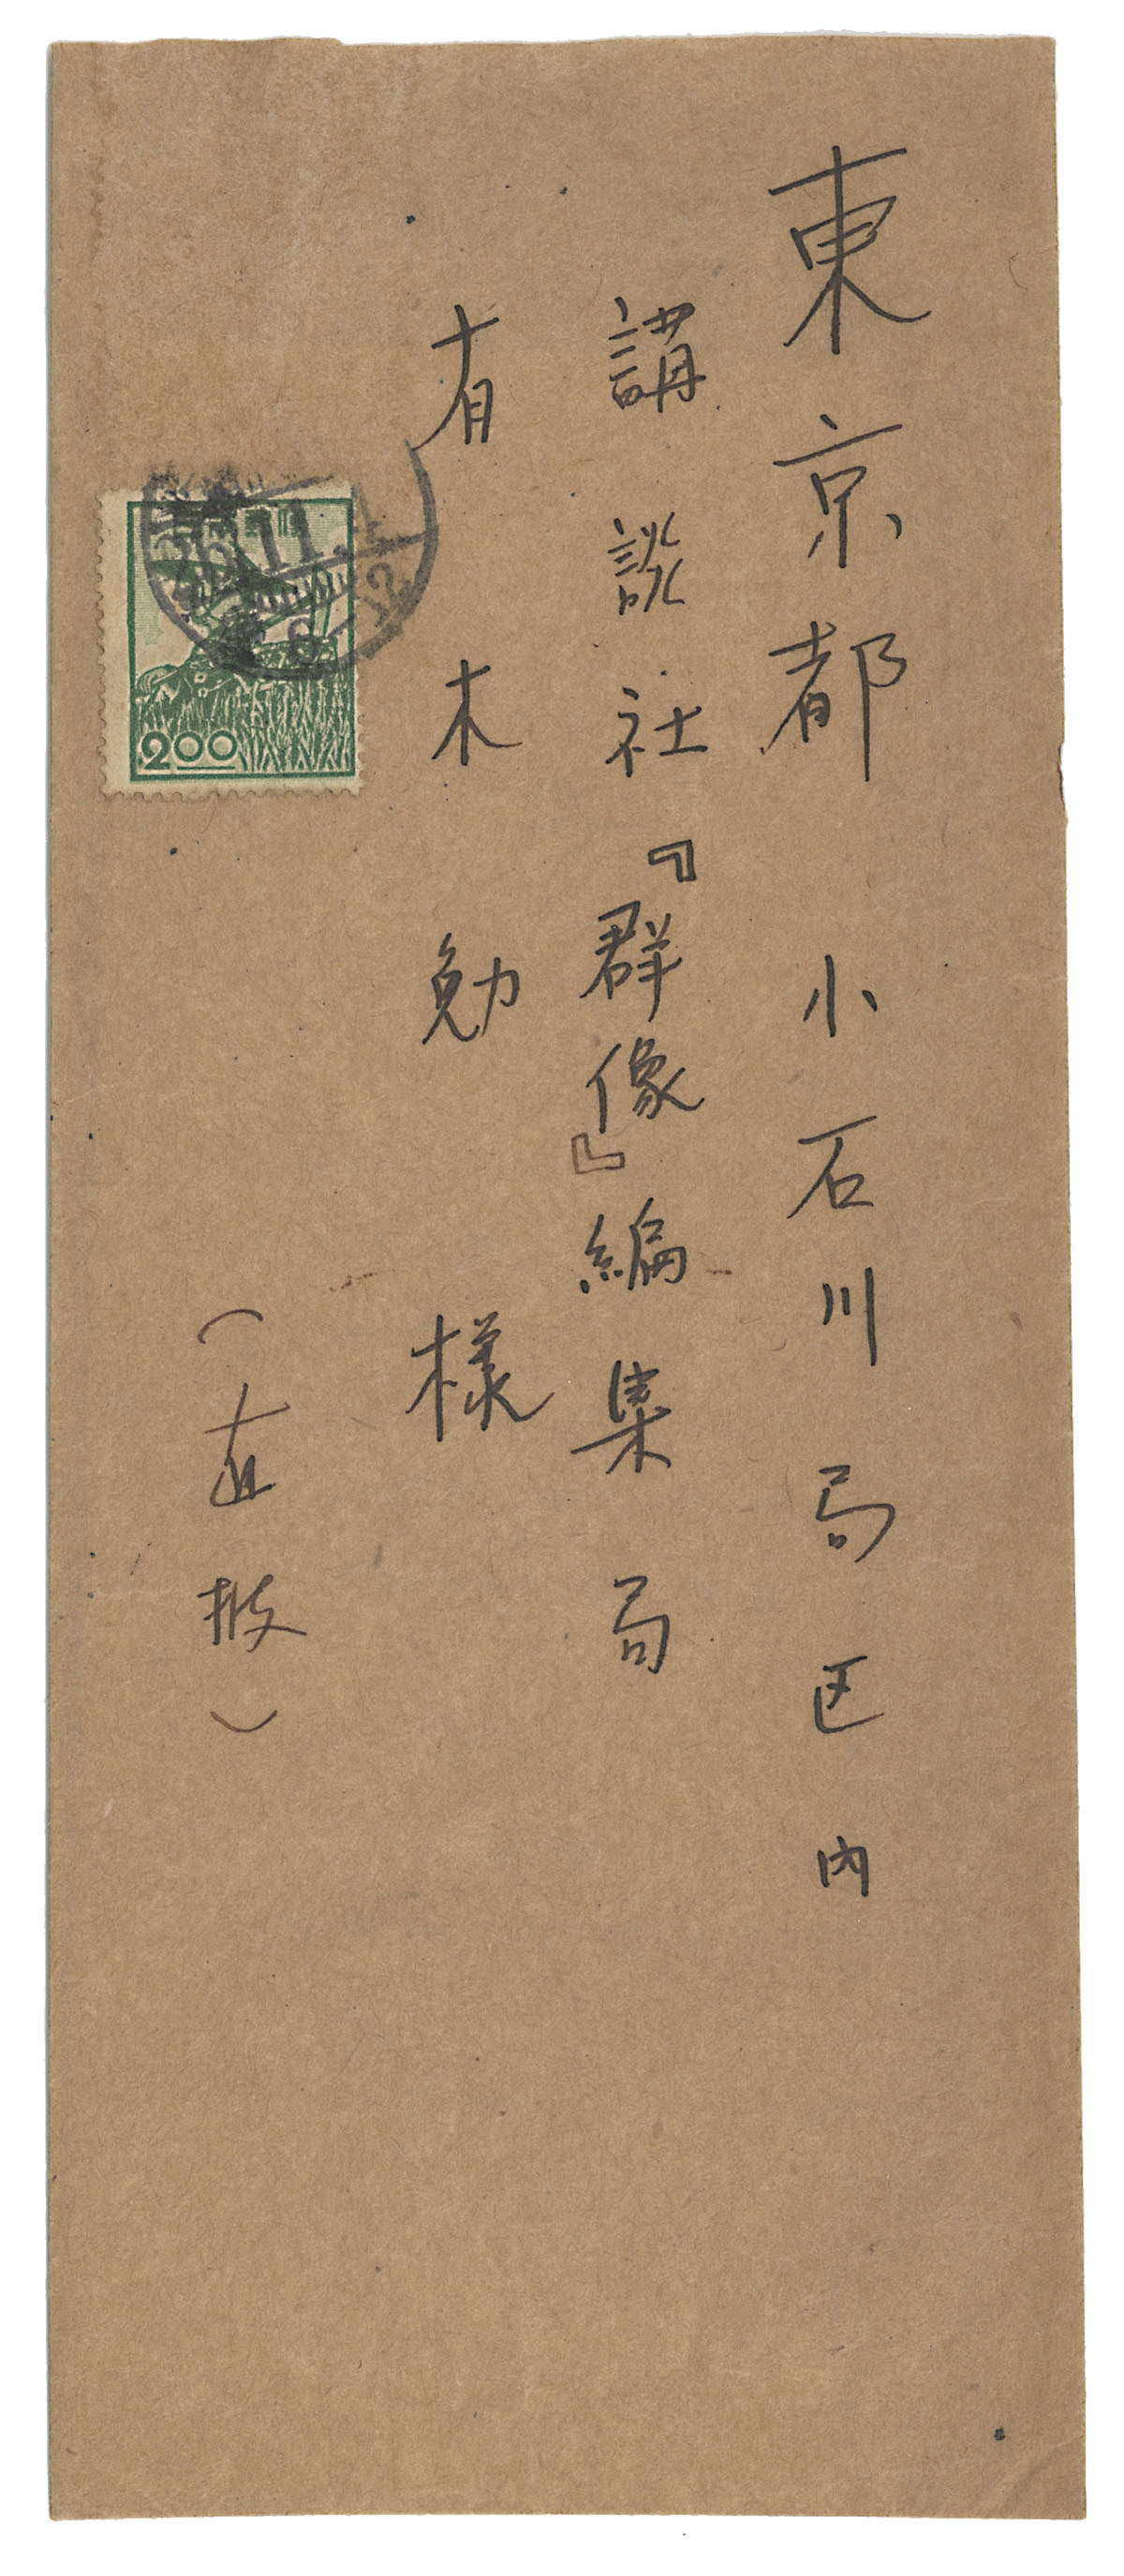 東京都 小石川局区内
講談社『群像』編集局
有木勉様
(直披)
26.11.
200